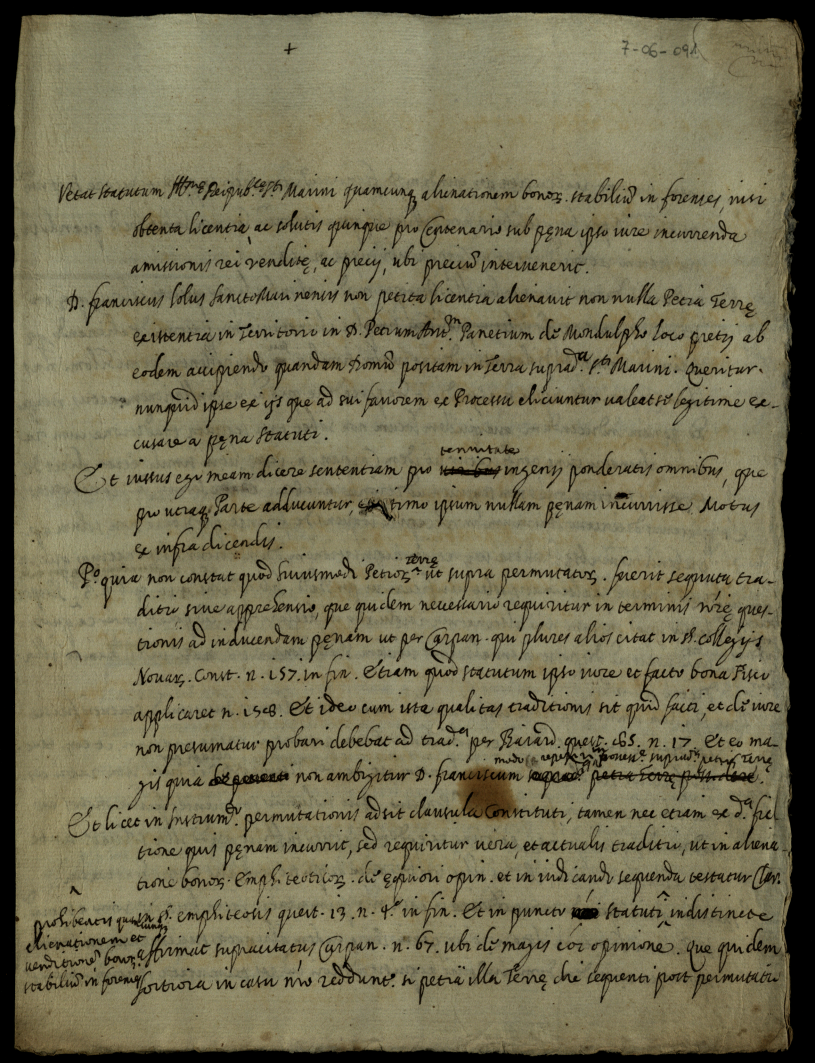 +
7-06-091
Vetat statutum Ill.mę Reipub.cę S.ti Marini quamcunq alienationem bonoꝝ. stabiliũ in forenses, nisi
obtenta licentia, ac solutis quinque pro Centenario sub pęna ipso iure incurrenda
amissionis rei venditę, ac precij, ubi preciũ intervenerit.
D. franciscus lolus SanctoMarinensis non petita licentia alienavit non nulla Petia Terrę
existentia in Territorio in D. Petrum Ant.m Panetium de Mondulpho loco pretij ab
eodem accipiendo quandam Domũ positam in Terra suprad.a S.ti Marini. Queritur.
nunquid ipse ex ijs que ad sui favorem ex Processu eliciuntur valeat se legitime ex-
cusare a pęna statuti.
Et iussus ego meam dicere sententiam pro
tenuitate
ingenij ponderatis omnibus, que
pro utraq Parte adducuntur, timo ipsum nullam pęnam incurrisse. Motus
ex infra dicendis.
P.o quia non constat quod huiusmodi Petioꝝ
terrę
ut supra permutatoꝝ. fuerit sequuta tra-
ditio sive apprehensio, que quidem necessario requiritur in terminis nr̃ę ques-
tionis ad inducendam pęnam ut per Carpan. qui plures alios citat in §. collegijs
Novaꝝ. Const. n. 157. in fin. Etiam quod statutum ipso iure et facto bona Fisco
applicaret n. 158. Et ideo cum ista qualitas traditionis sit quid facti, et de iure
non presumatur probari debebat ad trad.a per Baiard. quest. n. 17 Et eo ma-
modo
terrę
gis quia non ambigitur D. franciscum
Et licet in Instrum.o permutationis adsit clausula Constituti, tamen nec etiam ex d.a fic-
tione quis pęnam incurrit, sed requiritur vera, et actualis traditio, ut in aliena-
tione bonoꝝ. Emphiteoticoꝝ. de ęquiori opin. et in iudicando sequenda testatur Clar.
in §. emphiteosis quest. 13. n. 4.o in fin. Et in puncto statuti ^ indistincte
^
prohibentis quamcunq
alienationem et
venditionẽ bonoꝝ
stabiliũ in forenses
affirmat supracitatus Carpan. n. 67. ubi de magis cõi opinione. que quidem
fortiora in casu nr̃o reddunt.r si petia illa Terrę die sequenti post permutatio